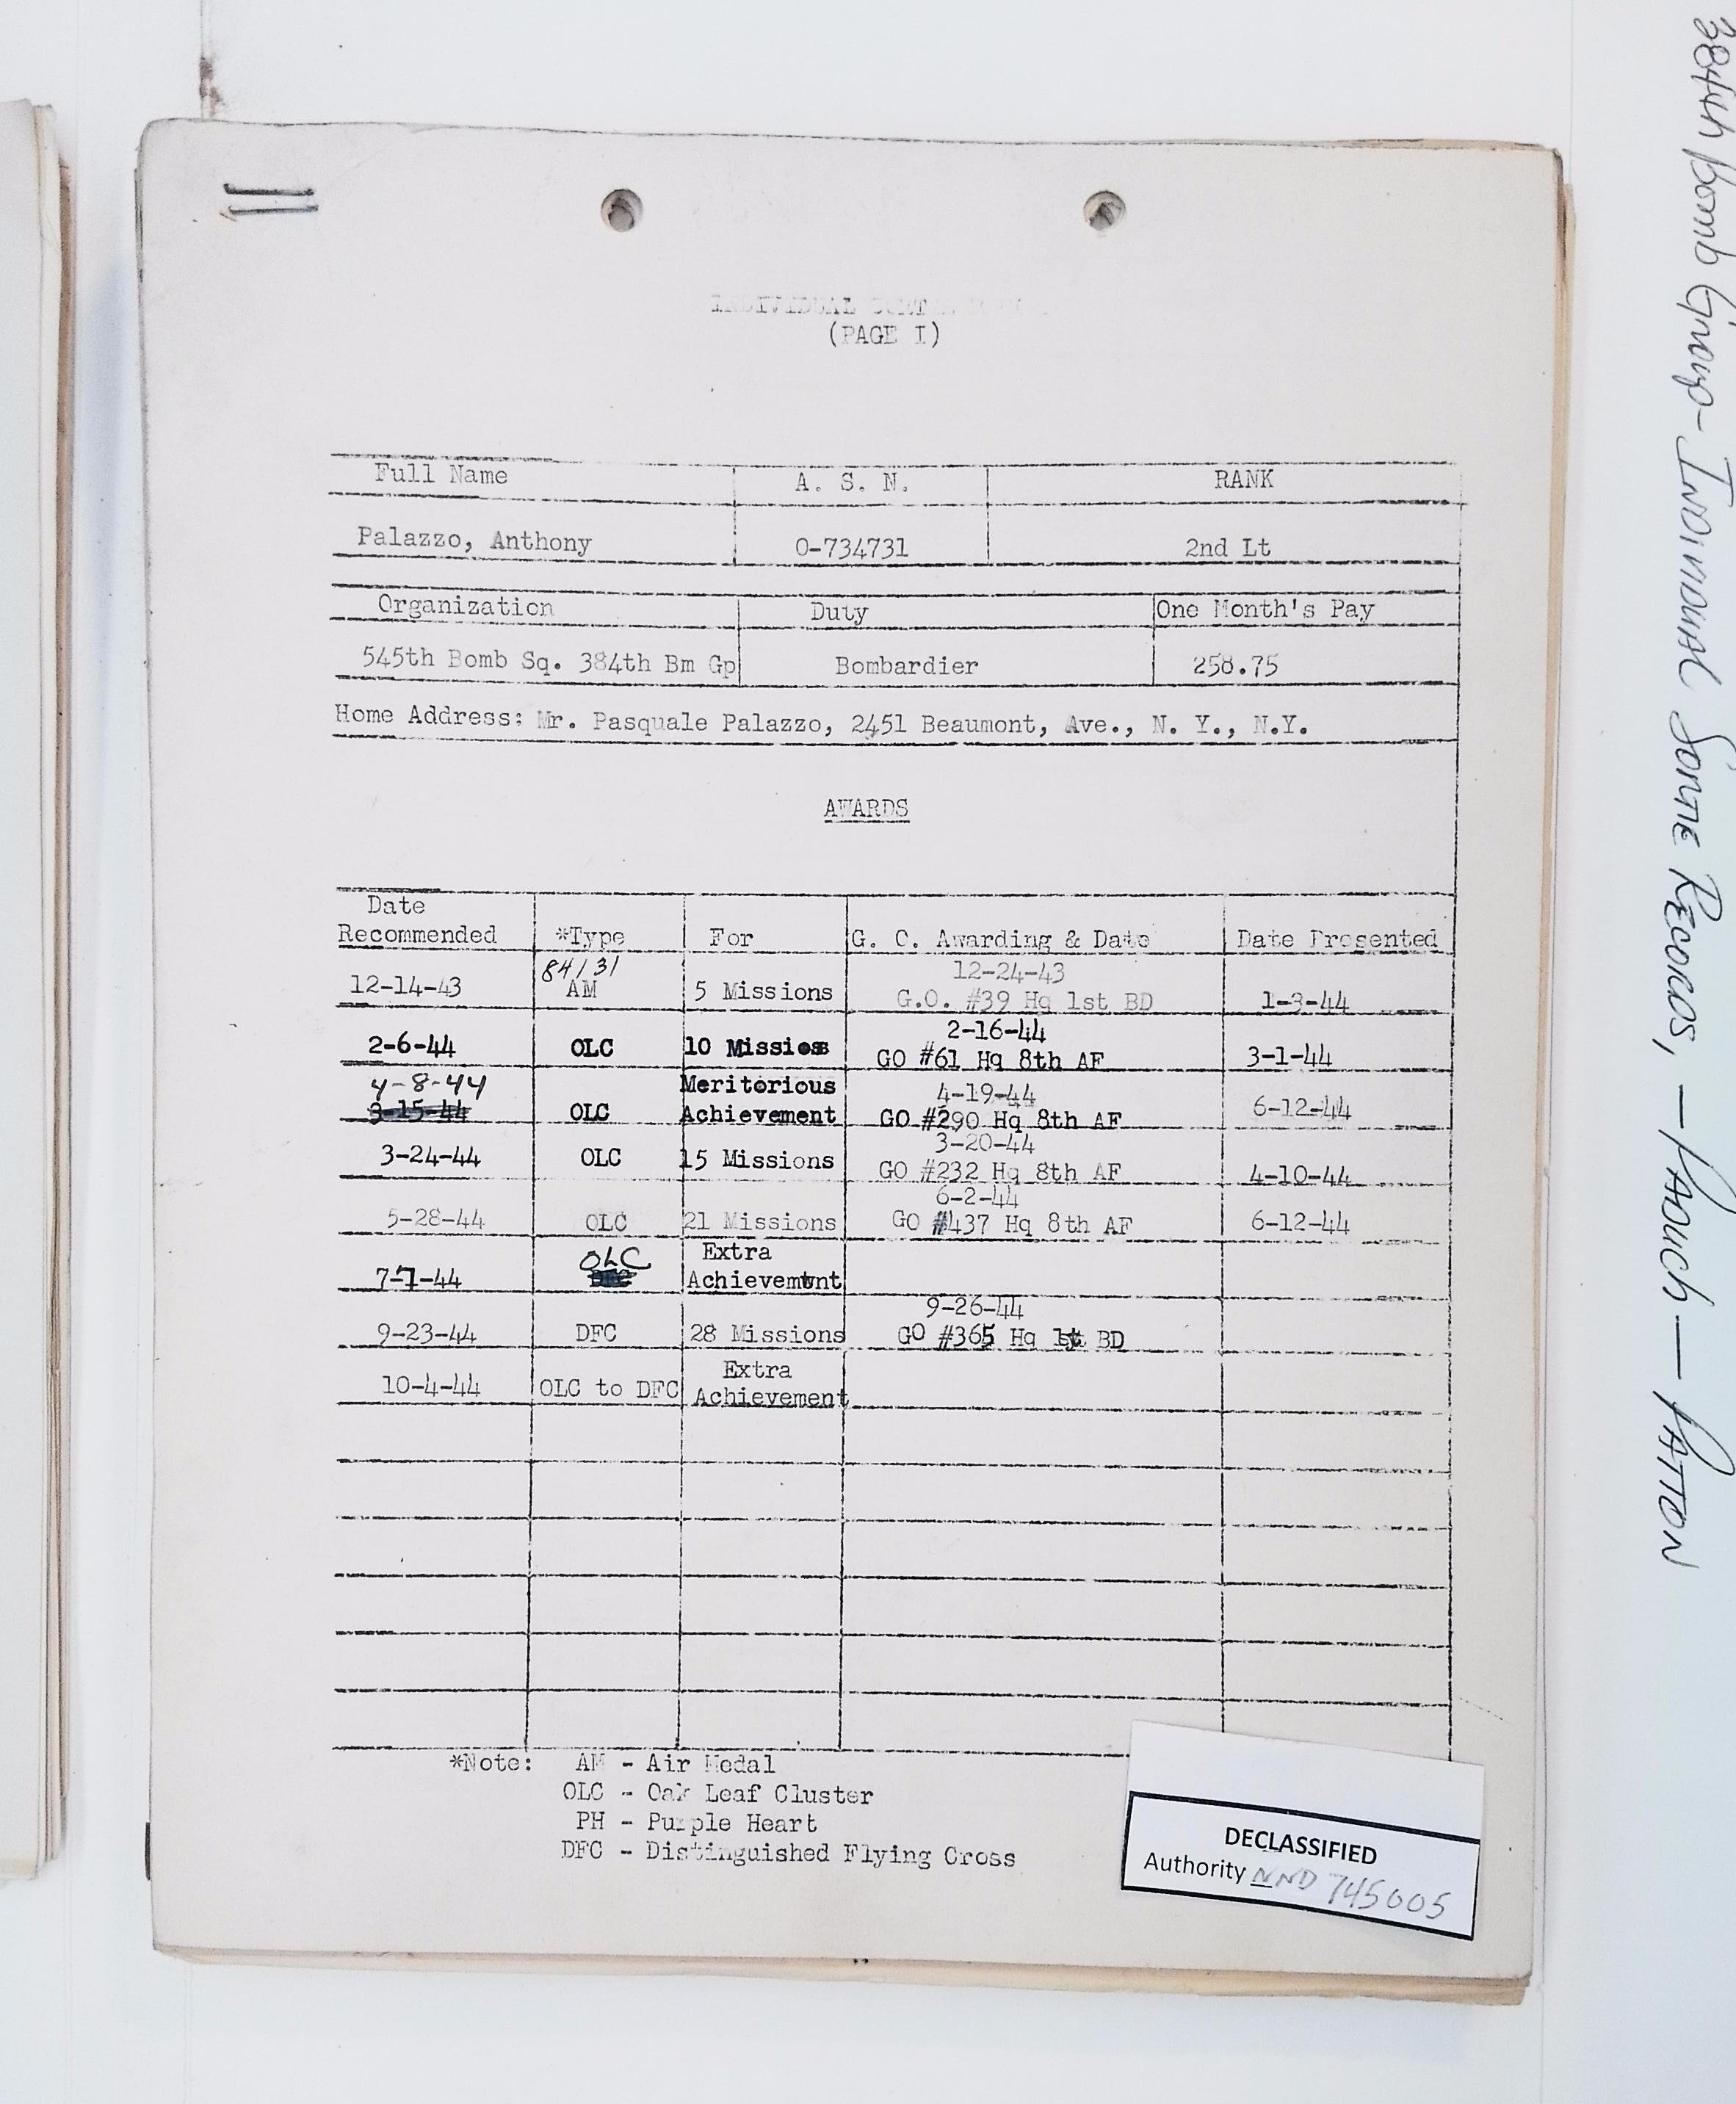 INDIVIDUAL
(PAGE I)
Full Name A. S. N. RANK
Palazzo, Anthony O-734731 2nd Lt
Organization Duty One Month's Pay
545th Bomb Sq. 384th Bm Gp Bombardier 258.75
Home Address: Mr. Pasquale Palazzo, 2451 Beaumont, Ave., N. Y., N.Y.
AWARDS
Date
Recommended *Type For G. C. Awarding & Date Date Presented
84131 12-24-43
12-14-43 AM 5 Missions G.O. #39 Hq 1st BD 1-3-44
2-16-44
2-6-44 OLC 10 Missios GO #61 Hq 8th AF 3-1-44
4-8-44 Meritorious 4-19-44
3-15-44 OLC Achievement GO #290 Hq 8th AF 6-12-44
3-20-44
3-24-44 OLC 15 Missions GO #232 Hq 8th AF 4-10-44
6-2-44
5-28-44 OLC 21 Missions GO #437 Hq 8th AF 6-12-44
OLC Extra
7-7-44 Achievemtnt
9-26-44
9-23-44 DFC 28 Missions GO #365 Hq 1st BD
Extra
10-4-44 OLC to DFC Achievement
*Note: AM - Air Medal
OLC - Oak Leaf Cluster
PH - Purple Heart
DFC - Distinguished Flying Cross
DECLASSIFIED
Authority NND 745005
384th Bomb Group- Individual Sortie Records, - Paouch - Patton